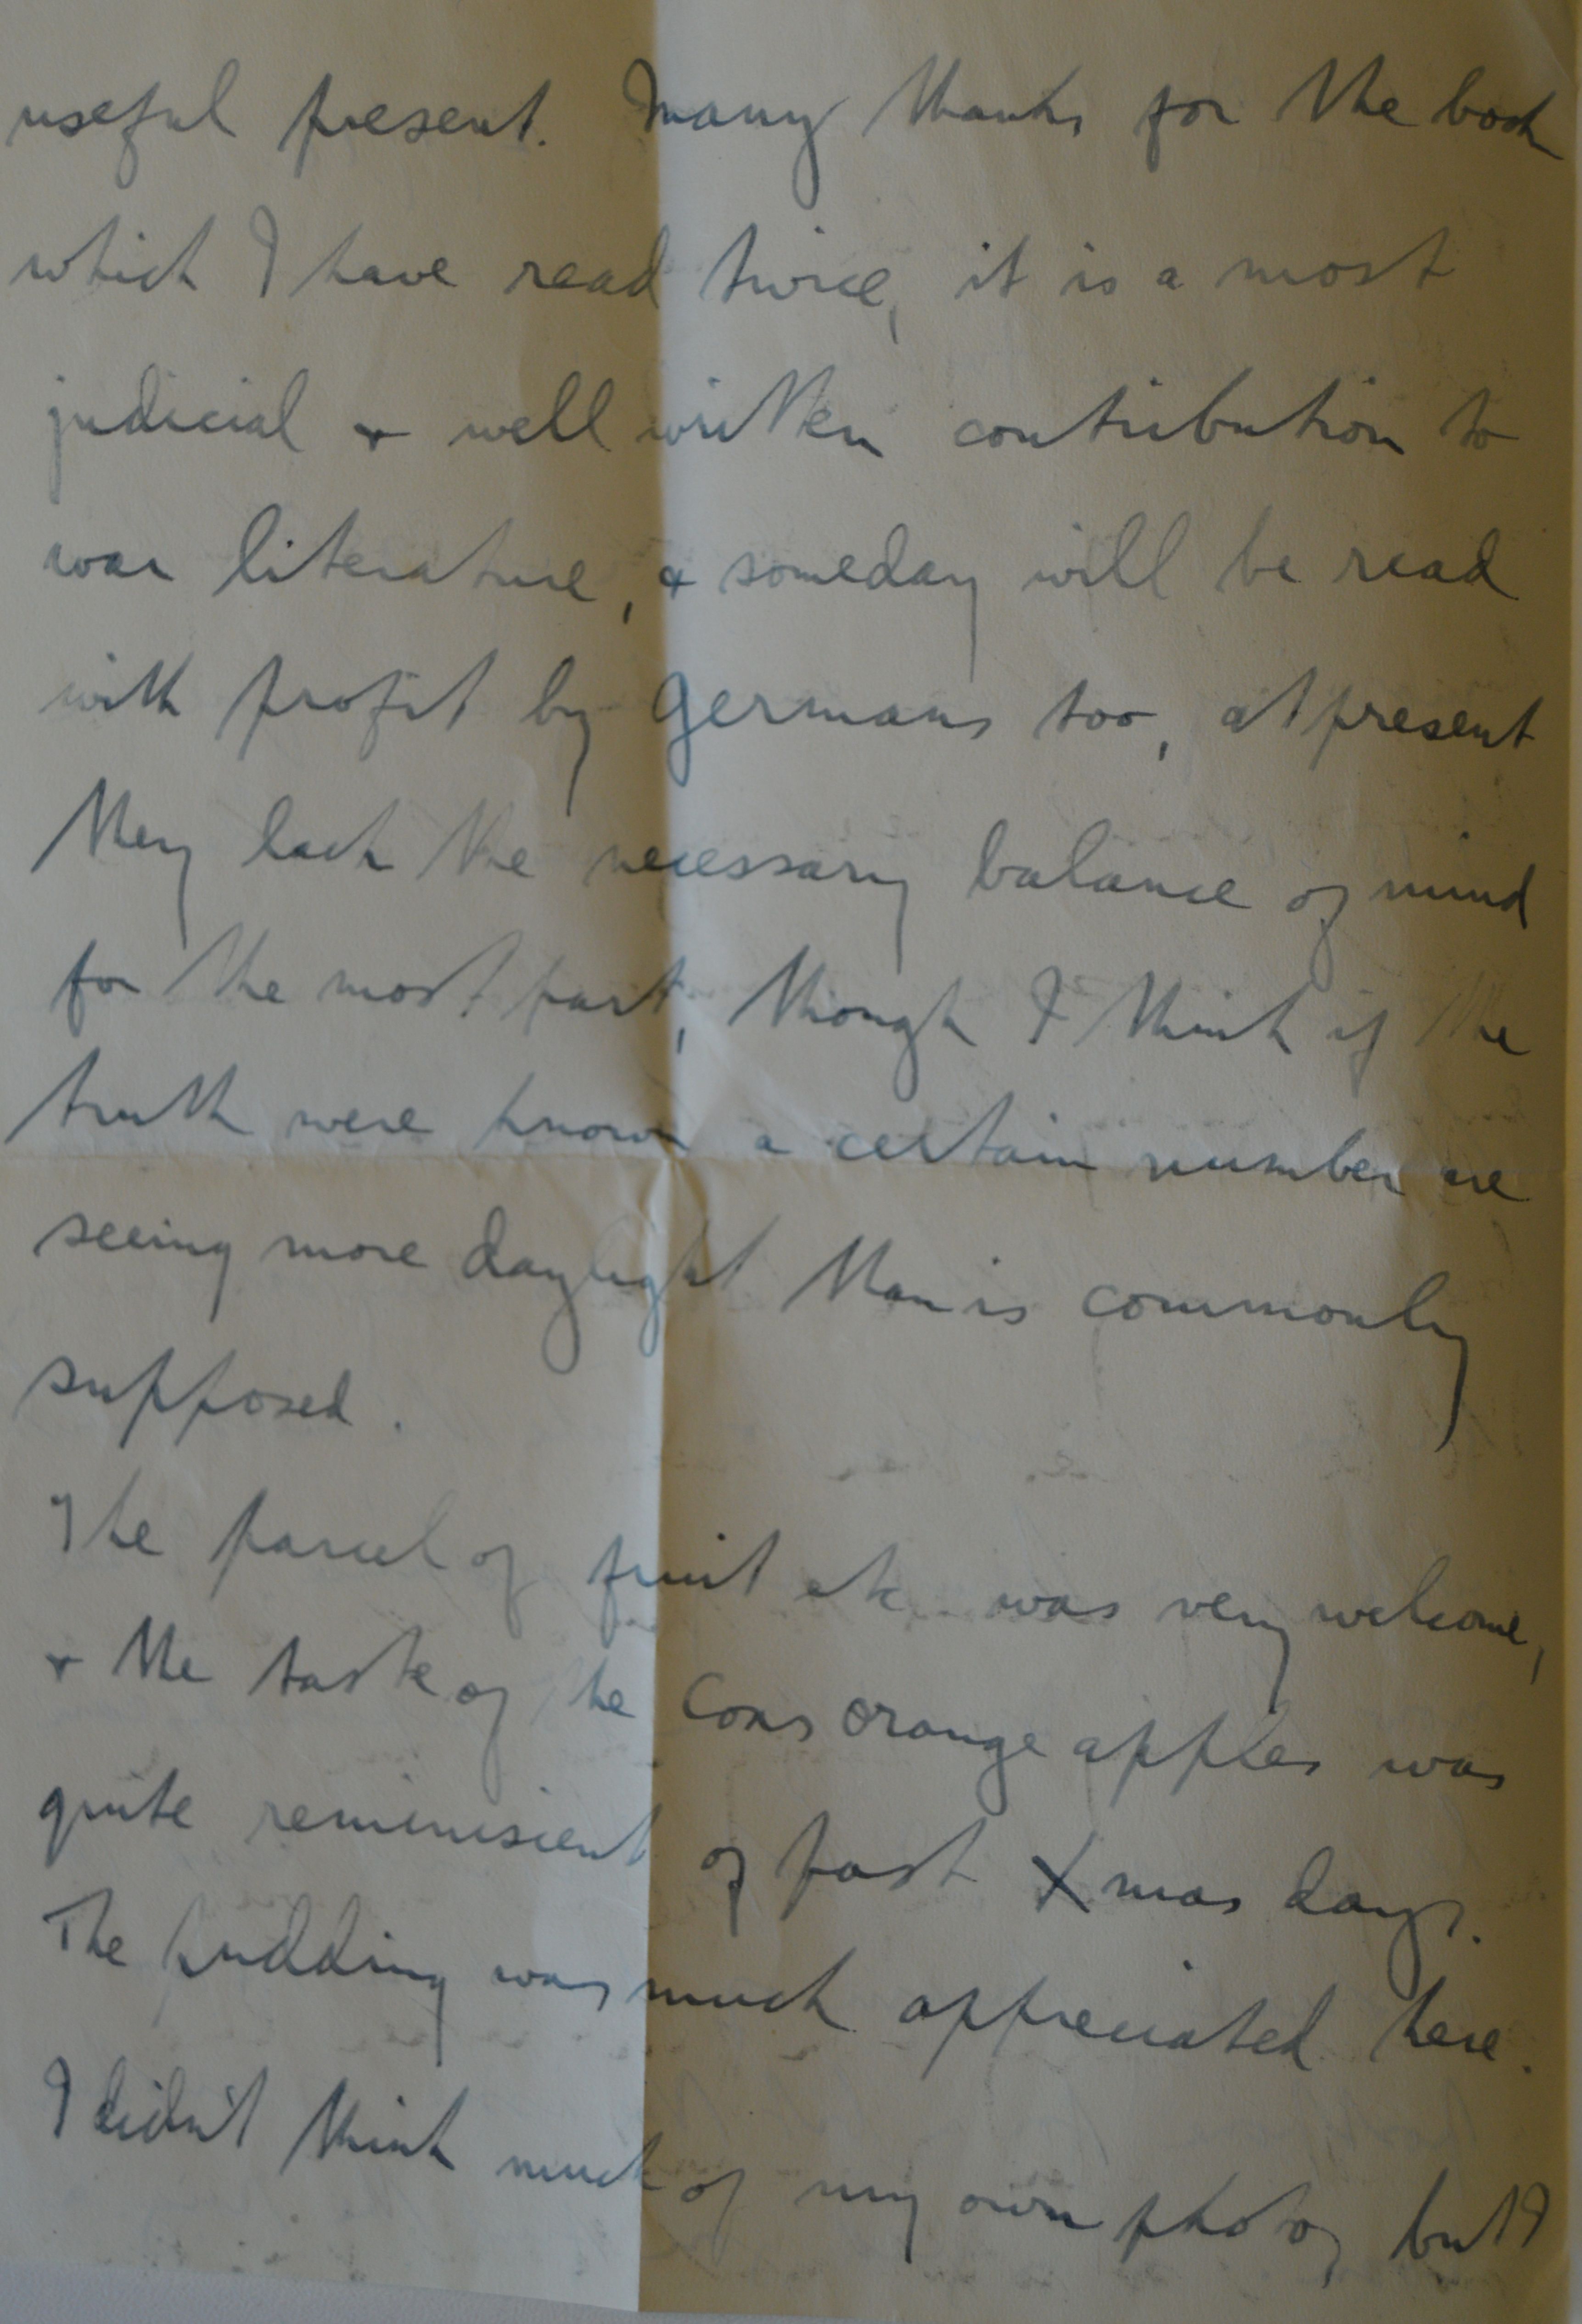 useful present. Many thanks for the book
which I have read twice, it is a most
judicial & well written contribution to
war literature, & someday will be read
with profit by Germans too, at present
they lack the necessary balance of mind
for the most part, though I think if the
truth were known a certain number are
seeing more daylight than is commonly
supposed.
The parcel of fruit etc. was very welcome,
& the taste of the Coxs orange apples was
quite reminiscent of past Xmas days.
The pudding was much appreciated here.
I didn't think much of my own photog but I